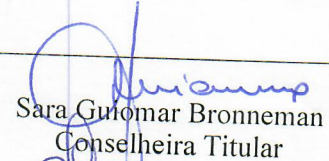 Sara Guiomar Bronneman
Conselheira Titular